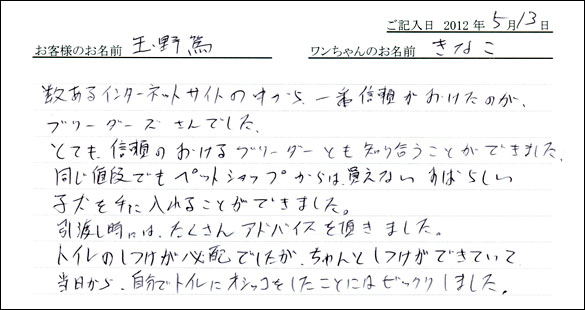 ご記入日 2012年5月13日
お客様のお名前 玉野篤 ワンちゃんのお名前 きなこ
数あるインターネットサイトの中から、一番信頼がおけたのが、
ブリーダーズさんでした。
とても、信頼のおけるブリーダーとも知り合うことができました。
同じ値段でもペットショップからは、買えないすばらしい
子犬を手に入れることができました。
引渡し時には、たくさんアドバイスを頂きました。
トイレのしつけが心配でしたが、ちゃんとしつけができていて
当日から、自分でトイレにオシッコをしたことにはビックリしました。